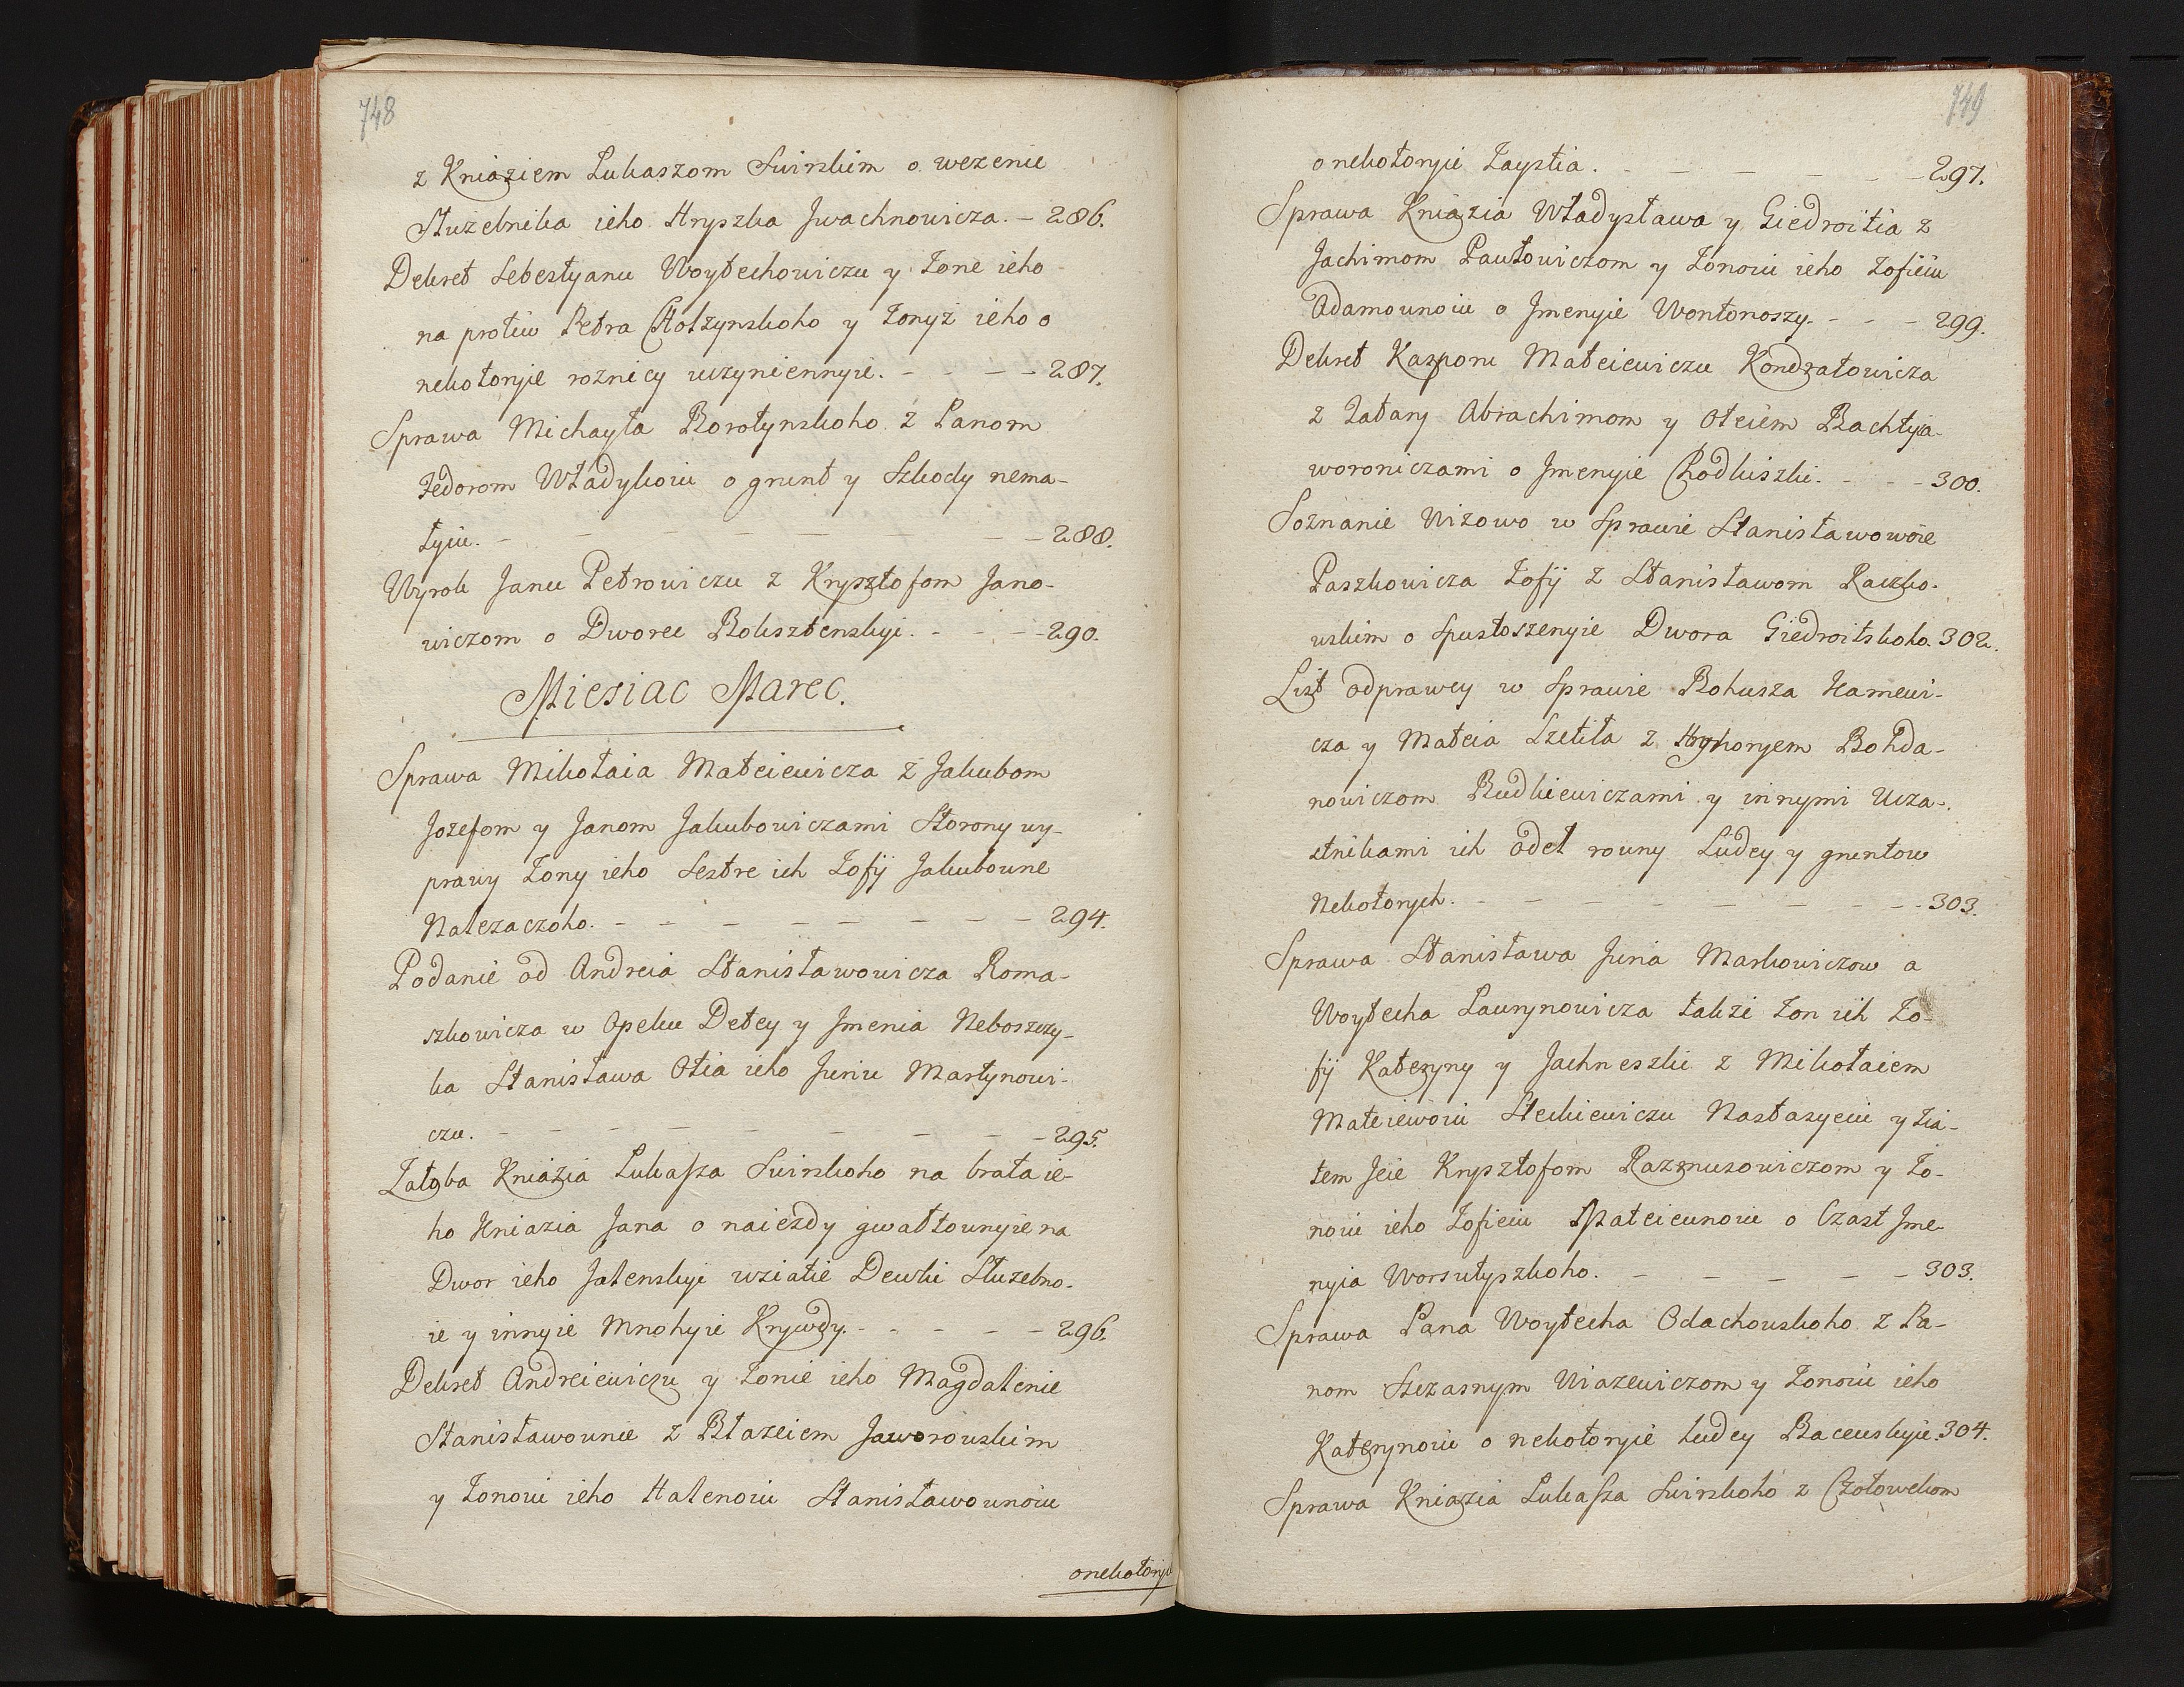 748
z Kniaziem Łukaszom Swirskim o wezenie
Służebnika ieho Hryszka Jwachnowicza. — 286.
Dekret Sebestyanu Woytechowiczu y Żone ieho
na protiw Petra Holzynskoho y Żonyż ieho o
nekotoryie roznicy uczyniennyie. — — — 287.
Sprawa Michayła Borotynskoho z Panom
Fedorom Władykoiu o grunt y Szkody nema-
łyiu. — — — — — — — — 288.
Wyrok Janu Petrowiczu z Krysztofom Jano-
wiczom o Dworec Boksztenskyi. — — — 290.
Miesiac Marec.
Sprawa Mikołaia Mateiewicza z Jakubom
Jozefom y Janom Jakubowiczami Storony wy-
prawy Żony ieho Sestre ich Zofij Jakubowne
Nalezaczoho. — — — — — — — 294.
Podanie od Andreia Stanisławowicza Roma-
szkowicza w Opeku Detey y Jmenia Neboszczy-
ka Stanisława Otia ieho Juriu Martynowi-
czu. — — — — — — — — 295.
Żałoba Kniazia Lukasza Swirskoho na brata ie-
ho Kniazia Jana o naiezdy gwałtownyie na
Dwor ieho Jatenskyi wziatie Dewki Służebno-
ie y innyie Mnohyie Krywdy. — — — — 296.
Dekret Andreiewiczu y Żonie ieho Magdalenie
Stanisławownie z Błazeiem Jaworowskim
y Żonoiu ieho Halenoiu Stanisławownoiu
onekotoryie
749
o nekotoryie Zaystia. — — — — — 297.
Sprawa Kniazia Władysława y Giedroitia z
Jachimom Pawłowiczom y Żonoiu ieho Zofieiu
Adamownoiu o Jmenyie Wontonoszy. — — — 299.
Dekret Kasporu Mateiewiczu Kondratowicza
z Tatary Abrachimom y Oteiem Bachtyia-
woroniczami o Jmenyie Chodkiszki. — — — 300.
Soznanie Wizowo w Sprawie Stanisławowoie
Paszkowicza Zofij z Stanisławom Raczko-
wskim o Spustoszenyie Dwora Giedroitskoho. 302.
List odprawcy w Sprawie Bohusza Hamewi-
cza y Mateia Szetiła z Hryhoryem Bohda-
nowiczom Rudkiewiczami y innymi Ucza-
stnikami ich odeł rowny Ludey y gruntow
Nekotorych. — — — — — — — — 303.
Sprawa Stanisława Juria Markowiczow a
Woytecha Laurynowicza takzi Żon ich Zo-
fij Kateryny y Jachneszki z Mikołaiem
Mateiewoiu Steckiewiczu Nastasyeiu y Zia-
tem Jeie Krysztofom Razmusowiczom y Żo-
noiu ieho Zofieiu Mateiewnoiu o Czast Jme-
nyia Worsutyszkoho. — — — — — 303.
Sprawa Pana Woytecha Odachowskoho z Pa-
nom Szczasnym Wiazewiczom y Żonoiu ieho
Katerynoiu o nekotoryie Ludey Bacewskyie. 304.
Sprawa Kniazia Lukasza Swirskoho z Czołowekom